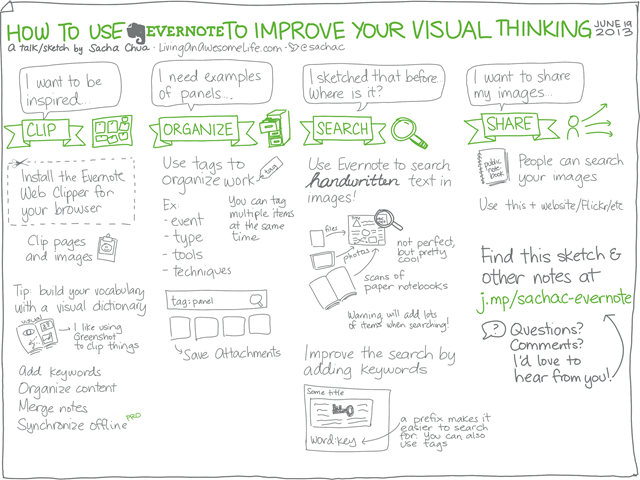 HOW TO USE EVERNOTE TO IMPROVE YOUR VISUAL THINKING
JUNE 19
2013
A talk/sketch by Sacha Chua · LivingAnAwesomeLife.com · @sachac
I want to be
inspired...
CLIP
Install the Evernote
Web Clipper for
your browser
Clip pages
and images
Tip: build your vocabulary
with a visual dictionary
VISUAL
I like using
Greenshot
to clip things
Add keywords
Organize content
Merge notes
Synchronize offline PRO
I need examples
of panels....
ORGANIZE
Use tags to
organize work
tag
Ex:
- event
- type
- tools
- techniques
You can tag
multiple items
at the same
time
tag:panel
Save Attachments
I sketched that before.
Where is it?
SEARCH
Use Evernote to search
handwritten text in
images!
files
photos
not perfect,
but pretty
cool
scans of
paper notebooks
Warning: will add lots
of items when searching!
Improve the search by
adding keywords
Some title
word:key
a prefix makes it
easier to search
for. You can also
use tags
I want to share
my images...
SHARE
public
note-
book
People can search
your images
Use this + website/Flickr/etc
Find this sketch &
other notes at
j.mp/sachac-evernote
?
Questions?
Comments?
I'd love to
hear from you!